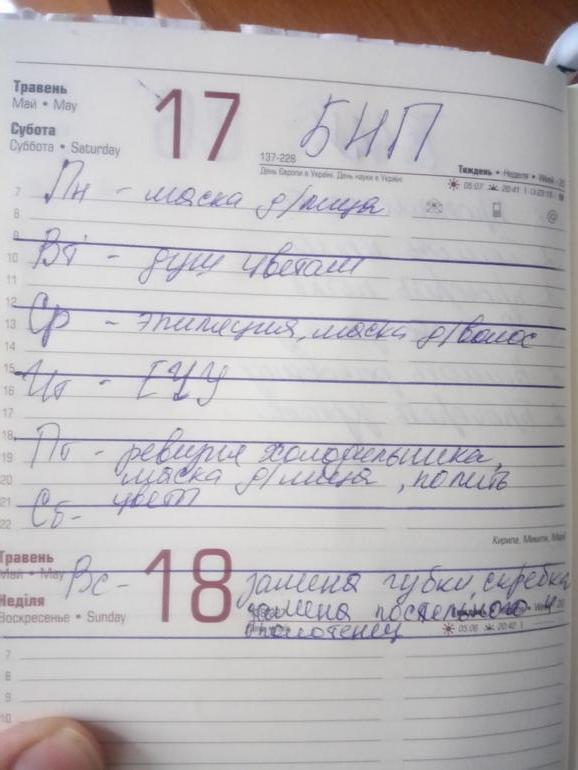 Травень
Май • May
17
БНП
Субота
Суббота • Saturday
137-228
День Європи в Україні. День науки в Україні
Тиждень • Неделя • Week • 20
05:07 20:41
7 Пн - маска д/лица
8
9
10 Вт - душ цветам
11
12
13 Ср - эпиляция, маска д/волос
14
15
16 Чт - ГЦУ
17
18
19 Пт - ревизия холодильника,
20 маска д/лица, полить
21 цветы
22 Сб -
Кирила, Микити,
Травень
Май • May
Вс - 18 замена губки, скребка
Неділя замена постельного и
Воскресенье • Sunday полотенец
05:06 20:42
7
8
9
10